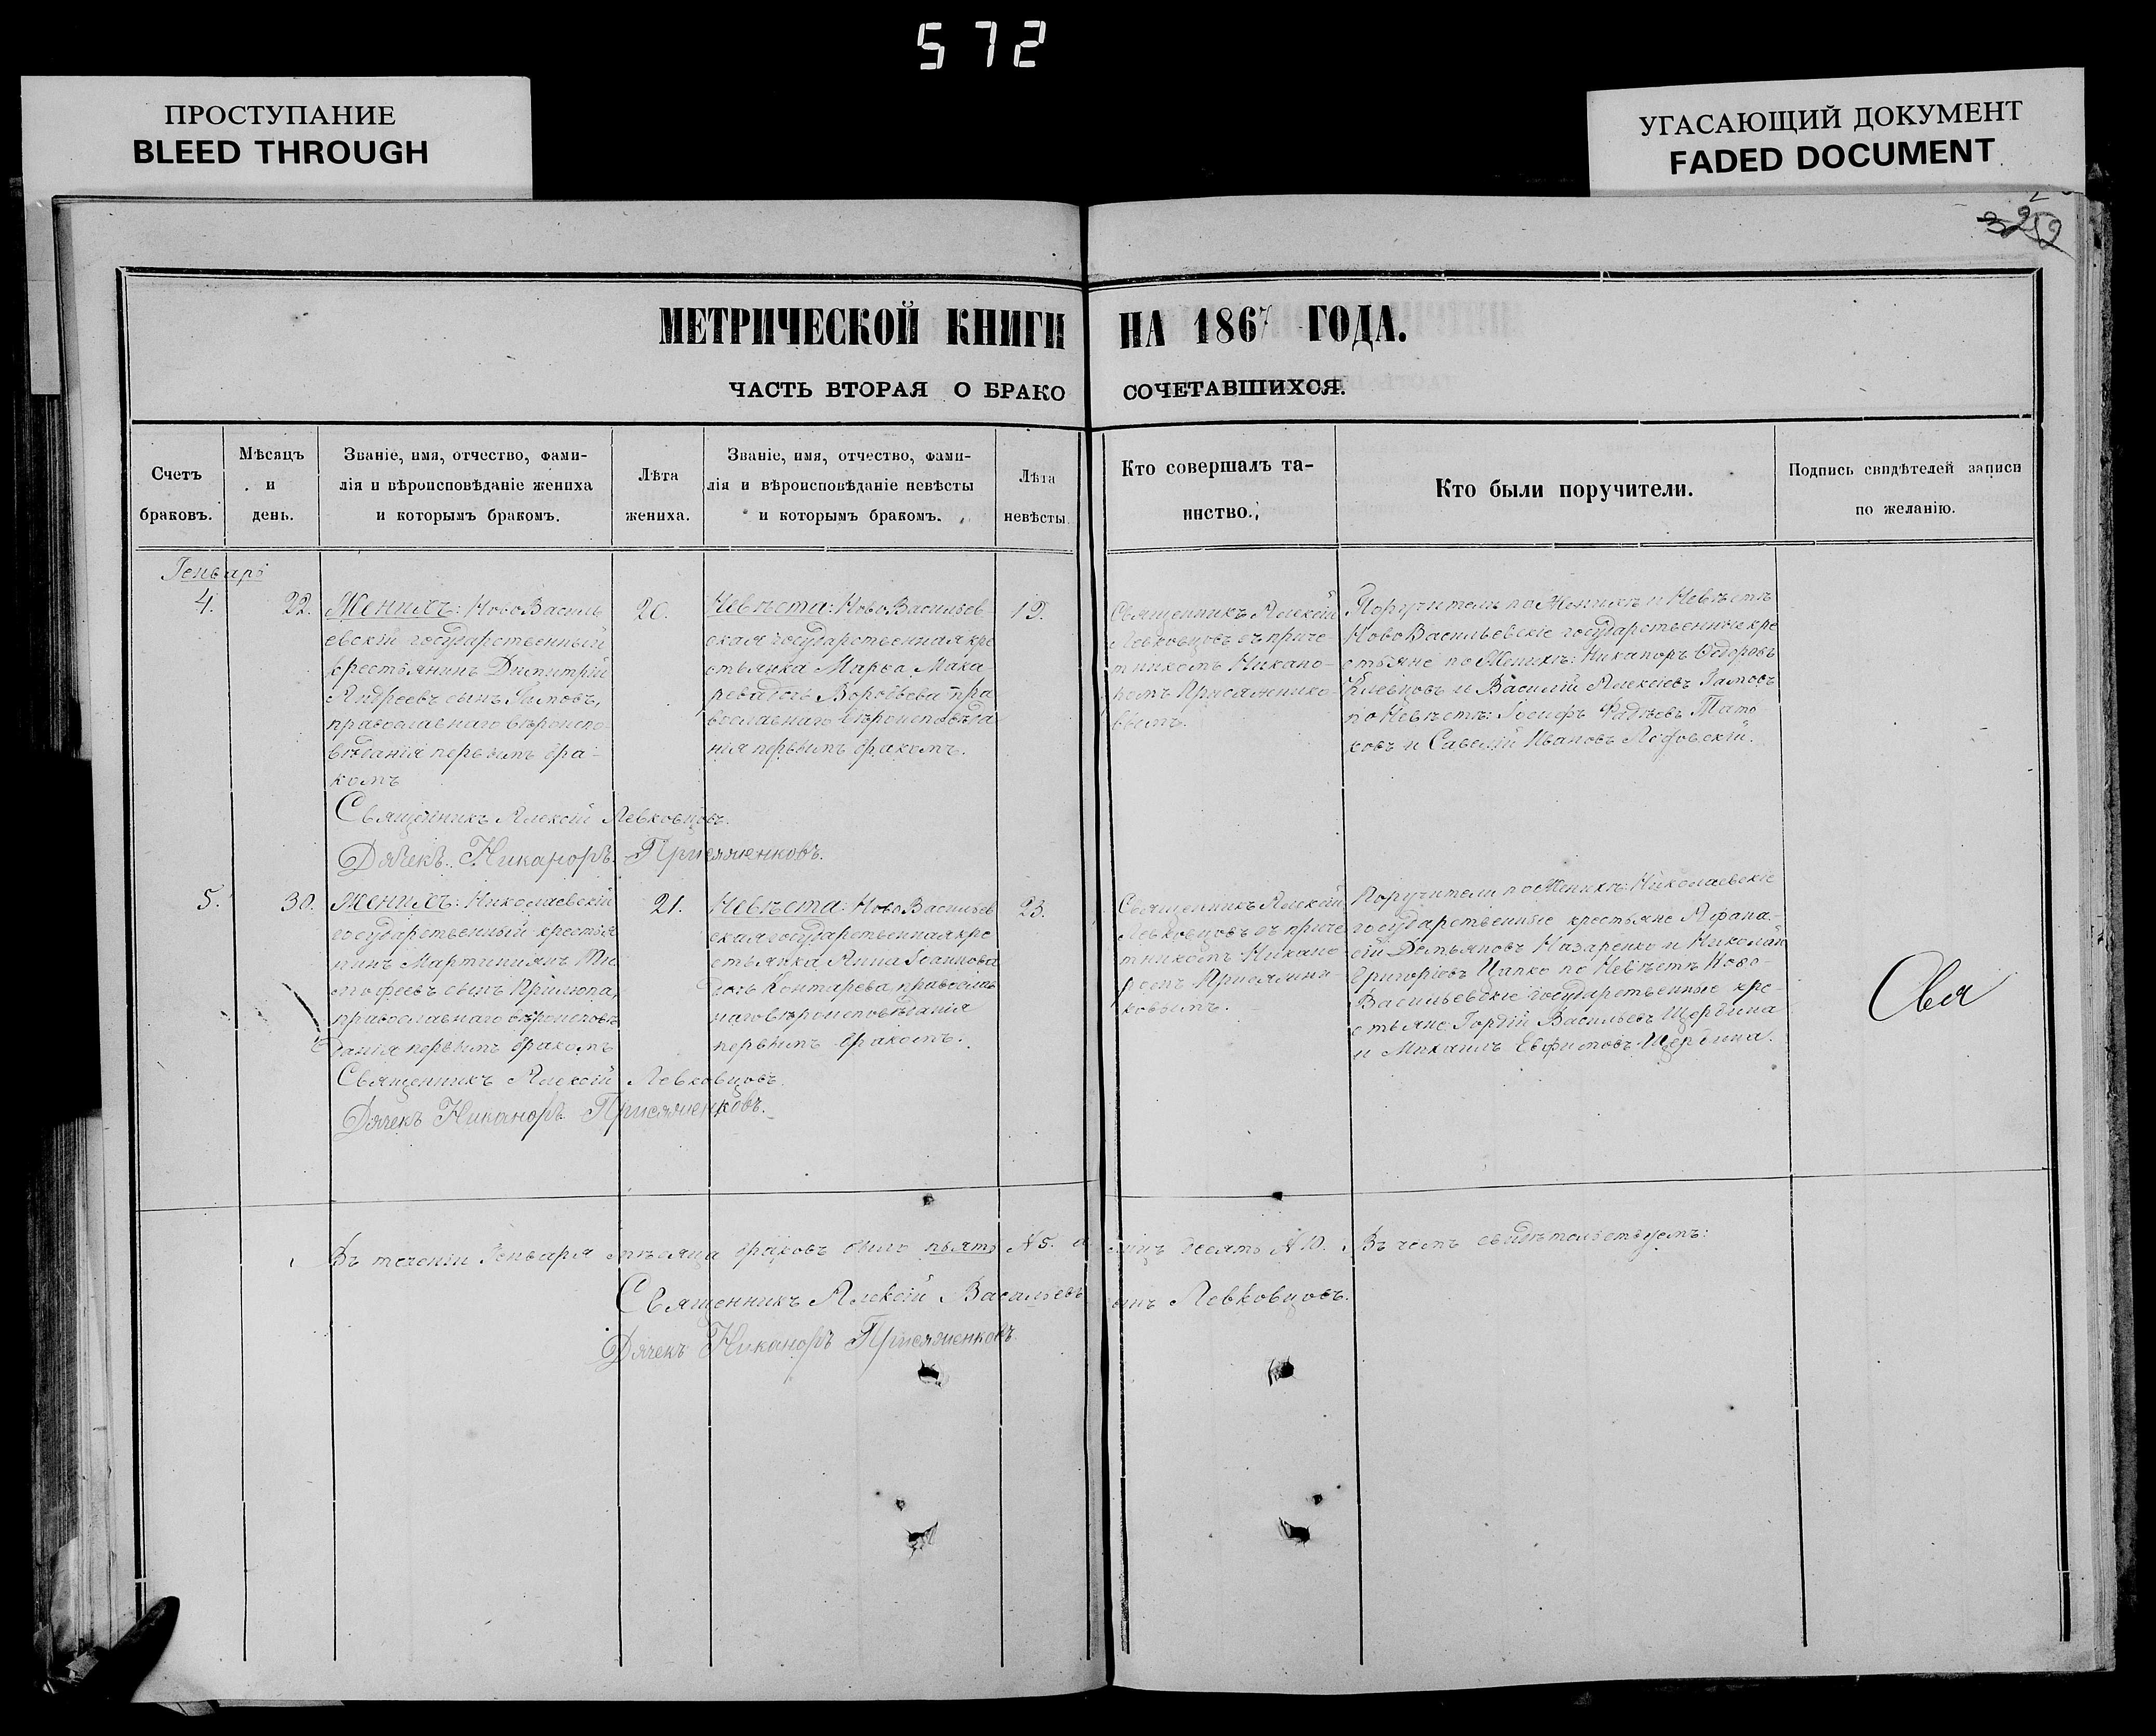 572
ПРОСТУПАНИЕ
BLEED THROUGH
УГАСАЮЩИЙ ДОКУМЕНТ
FADED DOCUMENT
МЕТРИЧЕСКОЙ КНИГИ НА 1867 ГОДА.
ЧАСТЬ ВТОРАЯ О БРАКОСОЧЕТАВШИХСЯ.
Счетъ
браковъ.
Мѣсяцъ
и
день.
Званіе, имя, отчество, фами-
лія и вѣроисповѣданіе жениха
и которымъ бракомъ.
Лѣта
жениха.
Званіе, имя, отчество, фами-
лія и вѣроисповѣданіе невѣсты
и которымъ бракомъ.
Лѣта
невѣсты.
Кто совершалъ та-
инство.
Кто были поручители.
Подпись свидѣтелей записи
по желанію.
Генварь
4.
22.
Женихъ: НовоВасиль
евскій государственный
крестьянинъ Димитрій
Андреевъ сынъ
православнаго вѣроиспо
вѣданія первымъ бра-
комъ
20.
Невѣста: НовоВасильев
ская государственная кре
стьянка Марѳа Мака
рева дочь Воробьева пра
вославнаго вѣроисповѣда
нія первымъ бракомъ.
19.
Священникъ Алексій
Левковцовъ съ приче
тникомъ Никано-
ромъ Присяжнико
вымъ.
Поручители по Женихѣ и Невѣстѣ
НовоВасильевскіе государственные кре
стьяне по Женихѣ: Никаноръ Ѳедоровъ
и Василій Алексіевъ
по Невѣстѣ: Іосифъ Фадѣевъ Тато
ковъ и Савелій Ивановъ
Священникъ Алексій Левковцовъ.
Дячекъ Никаноръ Присяженковъ.
5.
30.
Женихъ: Николаевскій
государственный крестья
нинъ Мартиніянъ Ти
моѳеевъ сынъ Прилюпа,
православнаго вѣроисповѣ
данія первымъ бракомъ
21.
Невѣста: НовоВасильев
ская государственная кре
стьянка Анна Іоаннова
дочь Контарева православ
наго вѣроисповѣданія
первымъ бракомъ.
23.
Священникъ Алексій
Левковцовъ съ приче
тникомъ Никано
ромъ Присяжни-
ковымъ.
Поручители по Женихѣ: Николаевскіе
государственные крестьяне Афана-
сій Демьяновъ Назаренко и Николай
Григоріевъ Цапко по Невѣстѣ Ново-
Васильевскіе государственные кре-
стьяне: Гордій Васильевъ Щербина
и Михаилъ Евфимовъ Щербина.
Свя
Священникъ Алексій Левковцовъ.
Дячекъ Никаноръ Присяженковъ.
Въ теченіи Генваря мѣсяца браковъ было пять №5. а лицъ десять №10. Въ чемъ свидѣтельствуемъ:
Священникъ Алексій Васильевъ сынъ Левковцовъ.
Дячекъ Никаноръ Присяженковъ